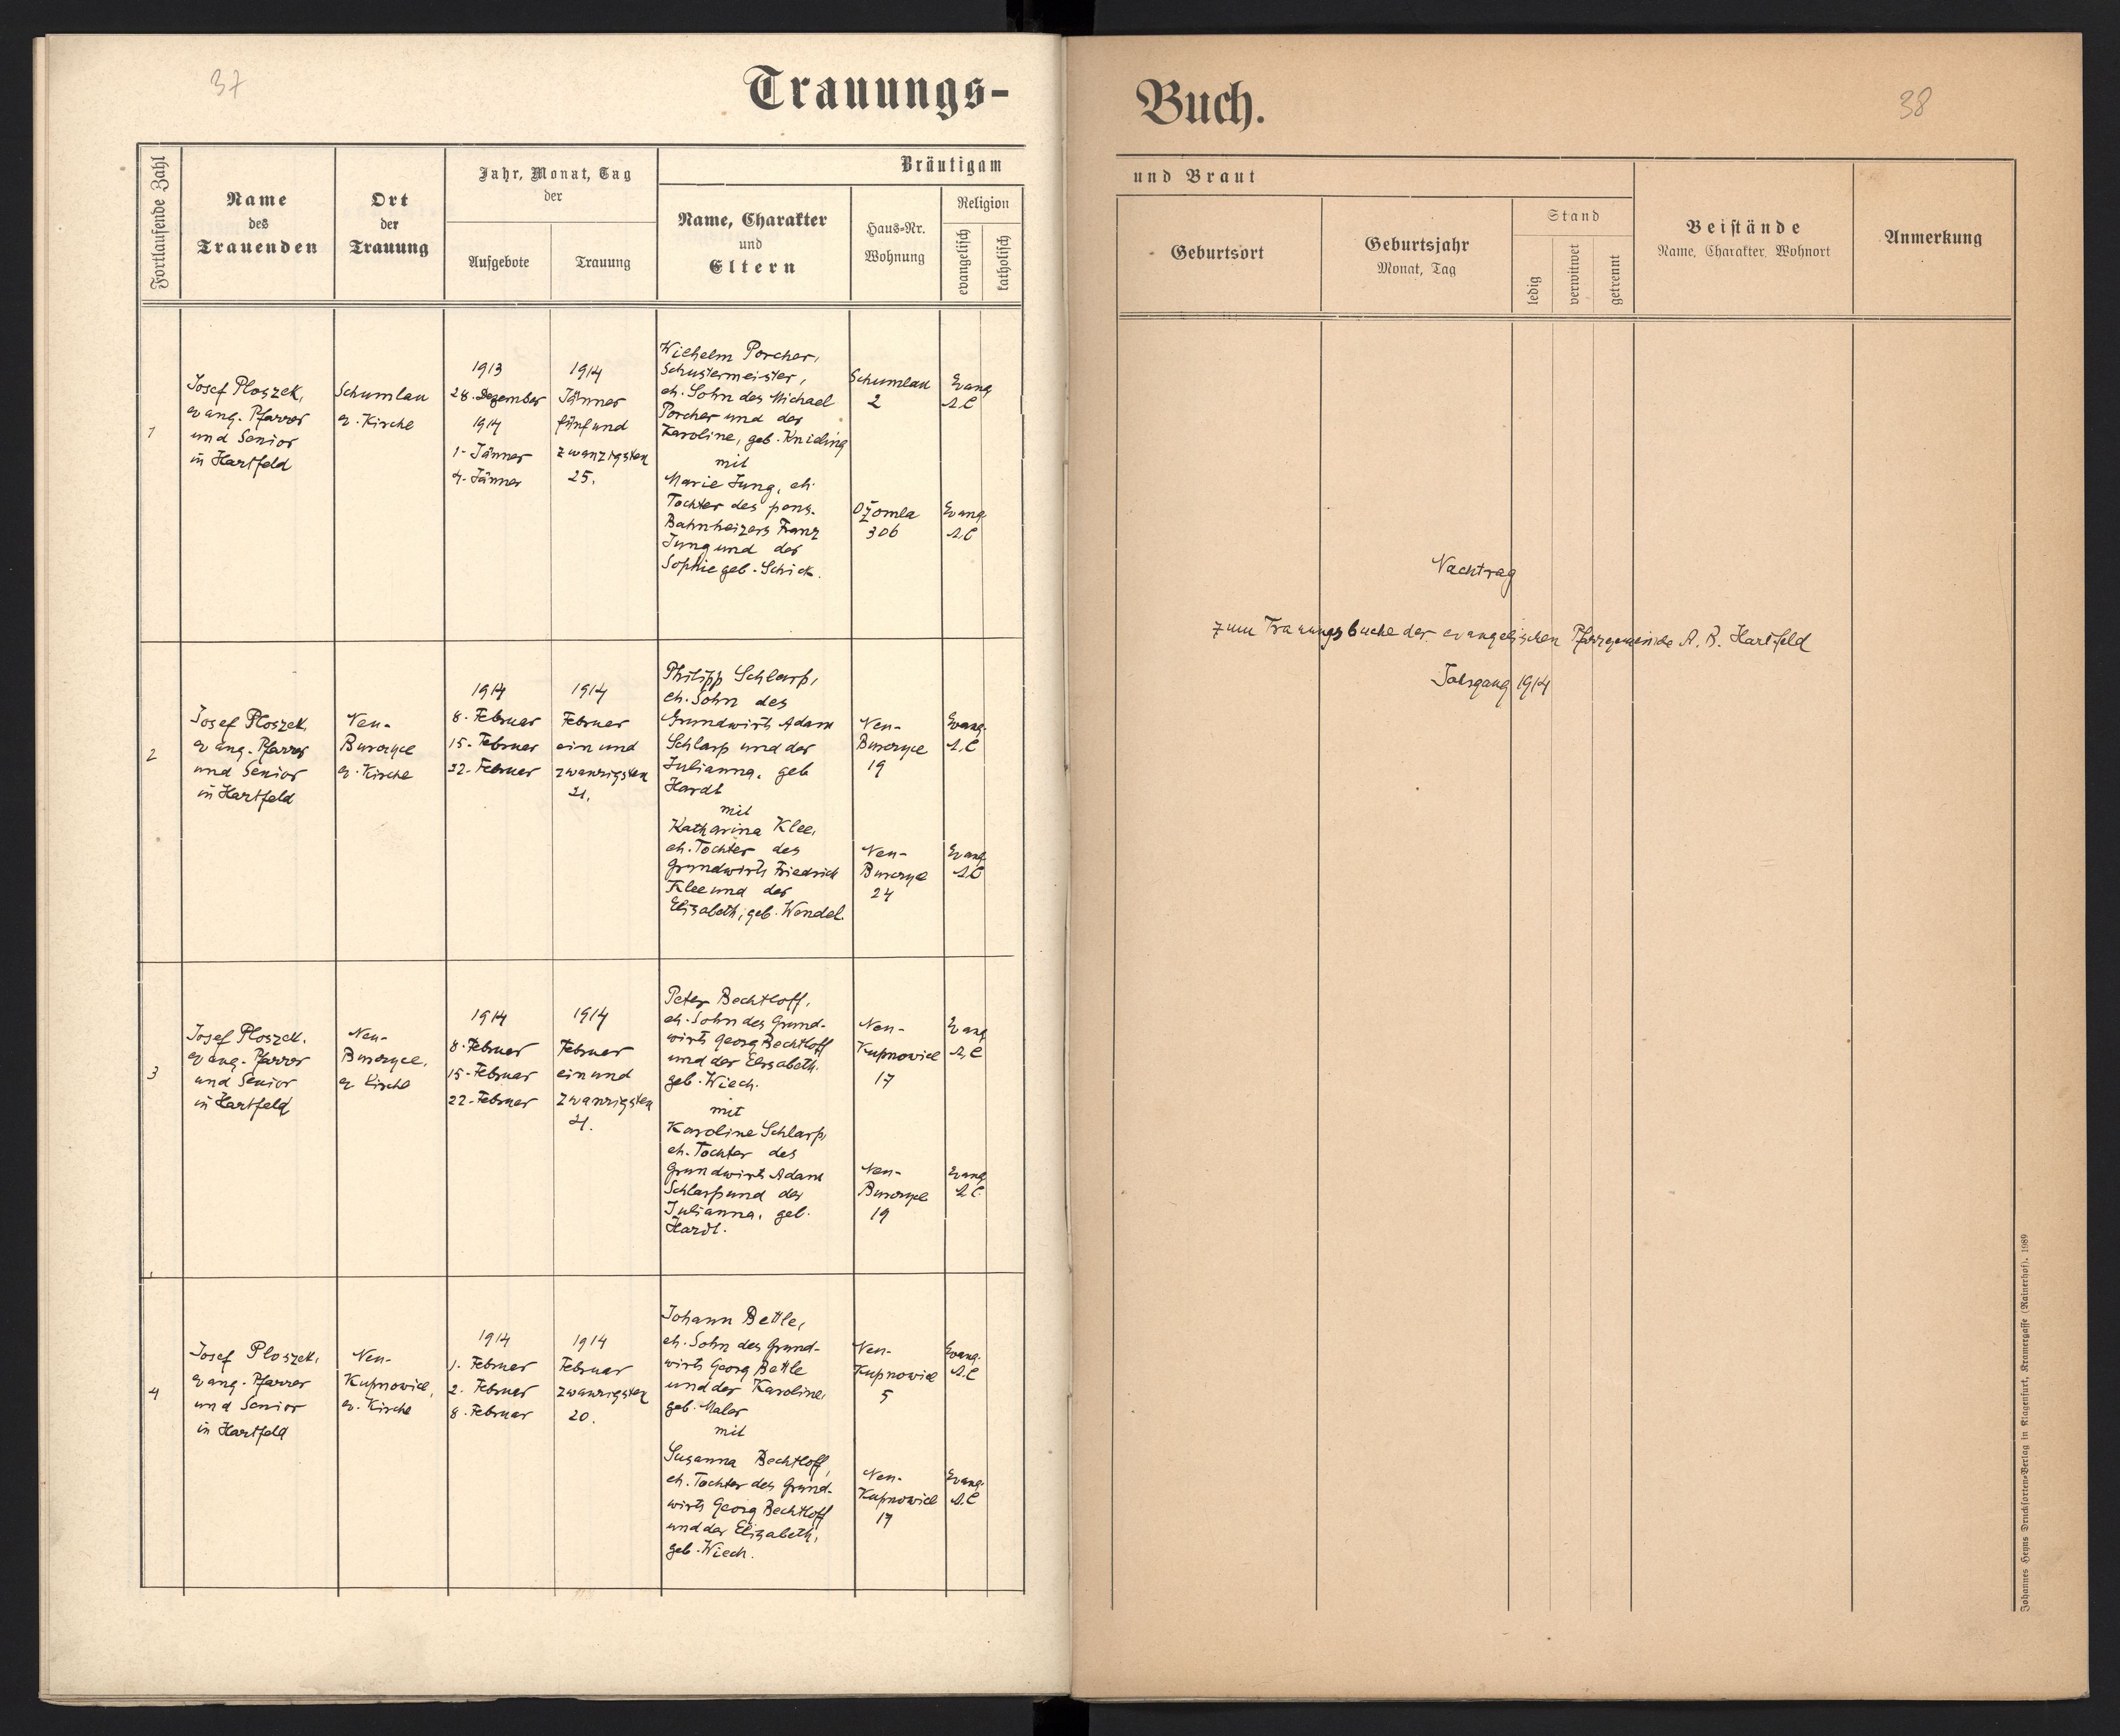 37
Trauungs-
Fortlaufende Zahl
Name
des
Trauenden
Ort
der
Trauung
Jahr, Monat, Tag
der
Aufgebote
Trauung
Bräutigam
Name, Charakter
und
Eltern
Haus-Nr.
Wohnung
Religion
evangelisch
katholisch
1
Josef Ploszek,
evang. Pfarrer
und Senior
in Hartfeld
Schumlau
ev. Kirche
1913
28. Dezember
1914
1. Jänner
4. Jänner
1914
Jänner
fünfund
zwanzigsten
25.
Wilhelm Porcher,
Schustermeister,
eh. Sohn des Michael
Porcher und der
Karoline, geb. Knieling
mit
Marie Jung, eh.
Tochter des pens.
Bahnheizers Franz
Jung und der
Sophie geb. Schick.
Schumlau
2
Ożomla
306
Evang
A.C
Evang
A.C
2
Josef Ploszek,
evang. Pfarrer
und Senior
in Hartfeld
Neu-
Burczyce
ev. Kirche
1914
8. Februar
15. Februar
22. Februar
1914
Februar
einund
zwanzigsten
21.
Philipp Schlarp,
eh. Sohn des
Grundwirts Adam
Schlarp und der
Julianna, geb
Hardt
mit
Katharina Klee,
eh. Tochter des
Grundwirts Friedrich
Klee und der
Elisabeth, geb. Wendel.
Neu-
Burczyce
19
Neu-
Burczyce
24
Evang.
A.C
Evang
A.C
3
Josef Ploszek,
evang. Pfarrer
und Senior
in Hartfeld
Neu-
Burczyce,
ev. Kirche
1914
8. Februar
15. Februar
22. Februar
1914
Februar
einund
zwanzigsten
21.
Peter Bechtloff,
eh. Sohn des Grund-
wirts Georg Bechtloff
und der Elisabeth.
geb. Wiech.
mit
Karoline Schlarp,
eh. Tochter des
Grundwirts Adam
Schlarp und der
Julianna, geb.
Hardt.
Neu-
Kupnowice
17
Neu-
Burczyce
19
Evang
A.C
Evang
A.C.
4
Josef Ploszek,
evang. Pfarrer
und Senior
in Hartfeld
Neu-
Kupnowice,
ev. Kirche
1914
1. Februar
2. Februar
8. Februar
1914
Februar
zwanzigsten
20.
Johann Bettle,
eh. Sohn des Grund-
wirts Georg Bettle
und der Karoline,
geb. Maler
mit
Susanna Bechtloff,
eh. Tochter des Grund-
wirts Georg Bechtloff
und der Elisabeth,
geb. Wiech.
Neu-
Kupnowice
5
Neu-
Kupnowice
17
Evang.
A.C
Evang.
A.C
Buch.
38
und Braut
Geburtsort
Geburtsjahr
Monat, Tag
Stand
ledig
verwitwet
getrennt
Beistände
Name, Charakter, Wohnort
Anmerkung
Nachtrag
zum Trauungsbuche der evangelischen Pfarrgemeinde A. B. Hartfeld
Jahrgang 1914
Johannes Heyns Drucksorten-Verlag in Klagenfurt, Kramergasse (Rainerhof). 1989